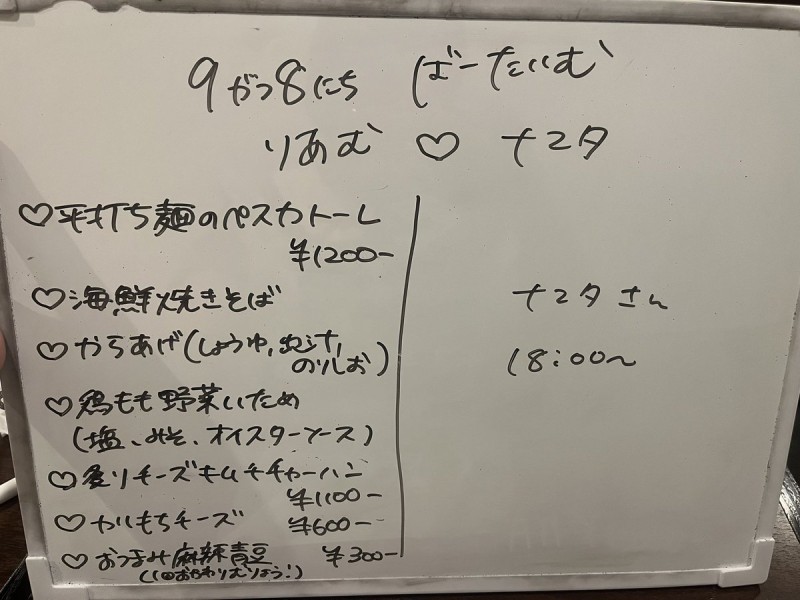 9がつ8にち ばーたいむ
りあむ ♡ ナユタ
♡平打ち麺のペスカトーレ
¥1200-
♡海鮮焼きそば
♡からあげ(しょうゆ,出汁,
のりしお)
♡鶏もも野菜いため
(塩、みそ、オイスターソース)
♡炙りチーズキムチチャーハン
¥1100-
♡かいもちチーズ ¥600-
♡おつまみ麻辣青豆 ¥300-
(1回おかわりむりょう!)
ナユタさん
18:00~